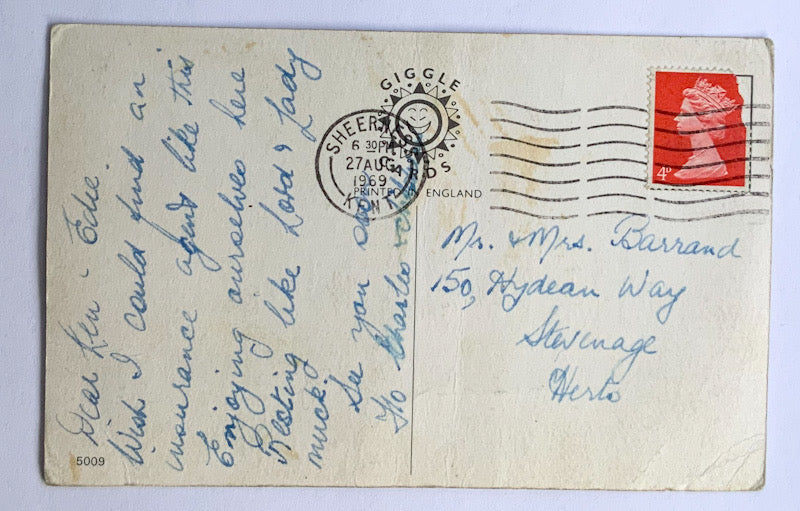 Dear Ken & Edie.
Wish I could find an
insurance agent like this
Enjoying ourselves here
Resting like Lord & Lady
muck.
See you soon
Flo Charlie
5009
GIGGLE
CARDS
PRINTED IN ENGLAND
SHEERNESS
6 30PM
27 AUG
1969
KENT
4D
Mr. & Mrs. Barrand
150, Hydean Way
Stevenage
Herts